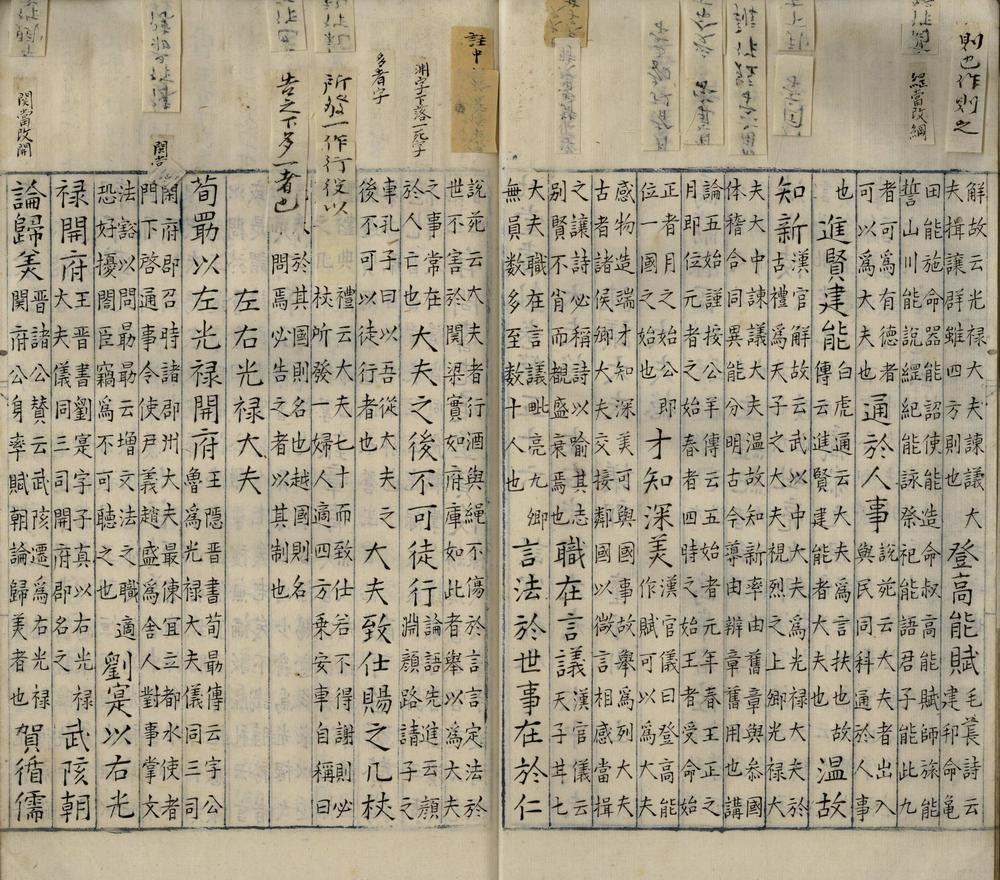 則也作則之
縕當改綱
解故云光禄大夫諫議大
夫揖讓群雖四方則也
登高能賦
毛萇詩云
建邦能龜
田能施命器能詔使能造命叔高能賦師旅能
誓山川能說縕紀能詠祭祀能語君子能此九
者可為有德者
可以為大夫也
通於人事
說苑云大夫者出入
與民同科通於人事
也
進賢建能
白虎通云大夫為言扶也故
傳云進賢建能者大夫也
温故
知新
漢官解故云武以中大夫為光禄大夫於
古禮為天子之大夫視烈之上卿光禄大
夫大中諫議大夫温故知新率由舊章與叅國
體稽合同異能分明古今導由辯章舊用也講
論五始謹按公羊傳云五始者元年春王正之
月即位元者之始春者四時之始王者受命始
正者月之始公即
位一國之始也
才知深美
漢官儀曰登高能
作賦可以為大夫
感物造端才知深美可與國事故舉為列大夫
古者諸侯卿大夫交接鄰國以微言相感當揖
之讓詩必稱詩以喻其志
別賢不肖而觀盛衰焉也
職在言議
漢官儀云
天子苷七
大夫職在言議毗亮九卿
無員数多至数十人也
言法於世事在於仁
註中
淵字下落一死字
多者字
所發一作行役以
告之下多一者也
開當
閞當改開
說苑云大夫者行酒與繩不傷於言言定法於
世不害於関梁實如府庫如此者舉以為大夫
之事常在
於人亡也
大夫之後不可徒行
論語先進云顏
淵顏路請子之
車孔子曰以吾從大夫之
後不可以徒行者也
大夫致仕賜之几杖
禮云大夫七十而致仕若不得謝則必
杖所發一婦人適四方乗安車自稱曰
人於其國則名也越國則名
問焉必告之者以其制也
左右光禄大夫
荀勗以左光禄開府
王隱晋書荀最傳云字公
魯為光禄大夫儀同三司
開府郡召時諸郡州大夫最倲冝立都水使者
門下啓通事令使尹義趙盛為舍人對事掌文
法谿以問最最云增文法之職適
恐好擾闇臣竊為不可聽之也
劉寔以右光
禄開府
王晋書劉寔字子真以右光禄
大夫儀同三司開府郡名之
武陔朝
論歸美
晋諸公賛云武陔遷為右光禄
閞府公身率賦朝論歸美者也
賀循儒